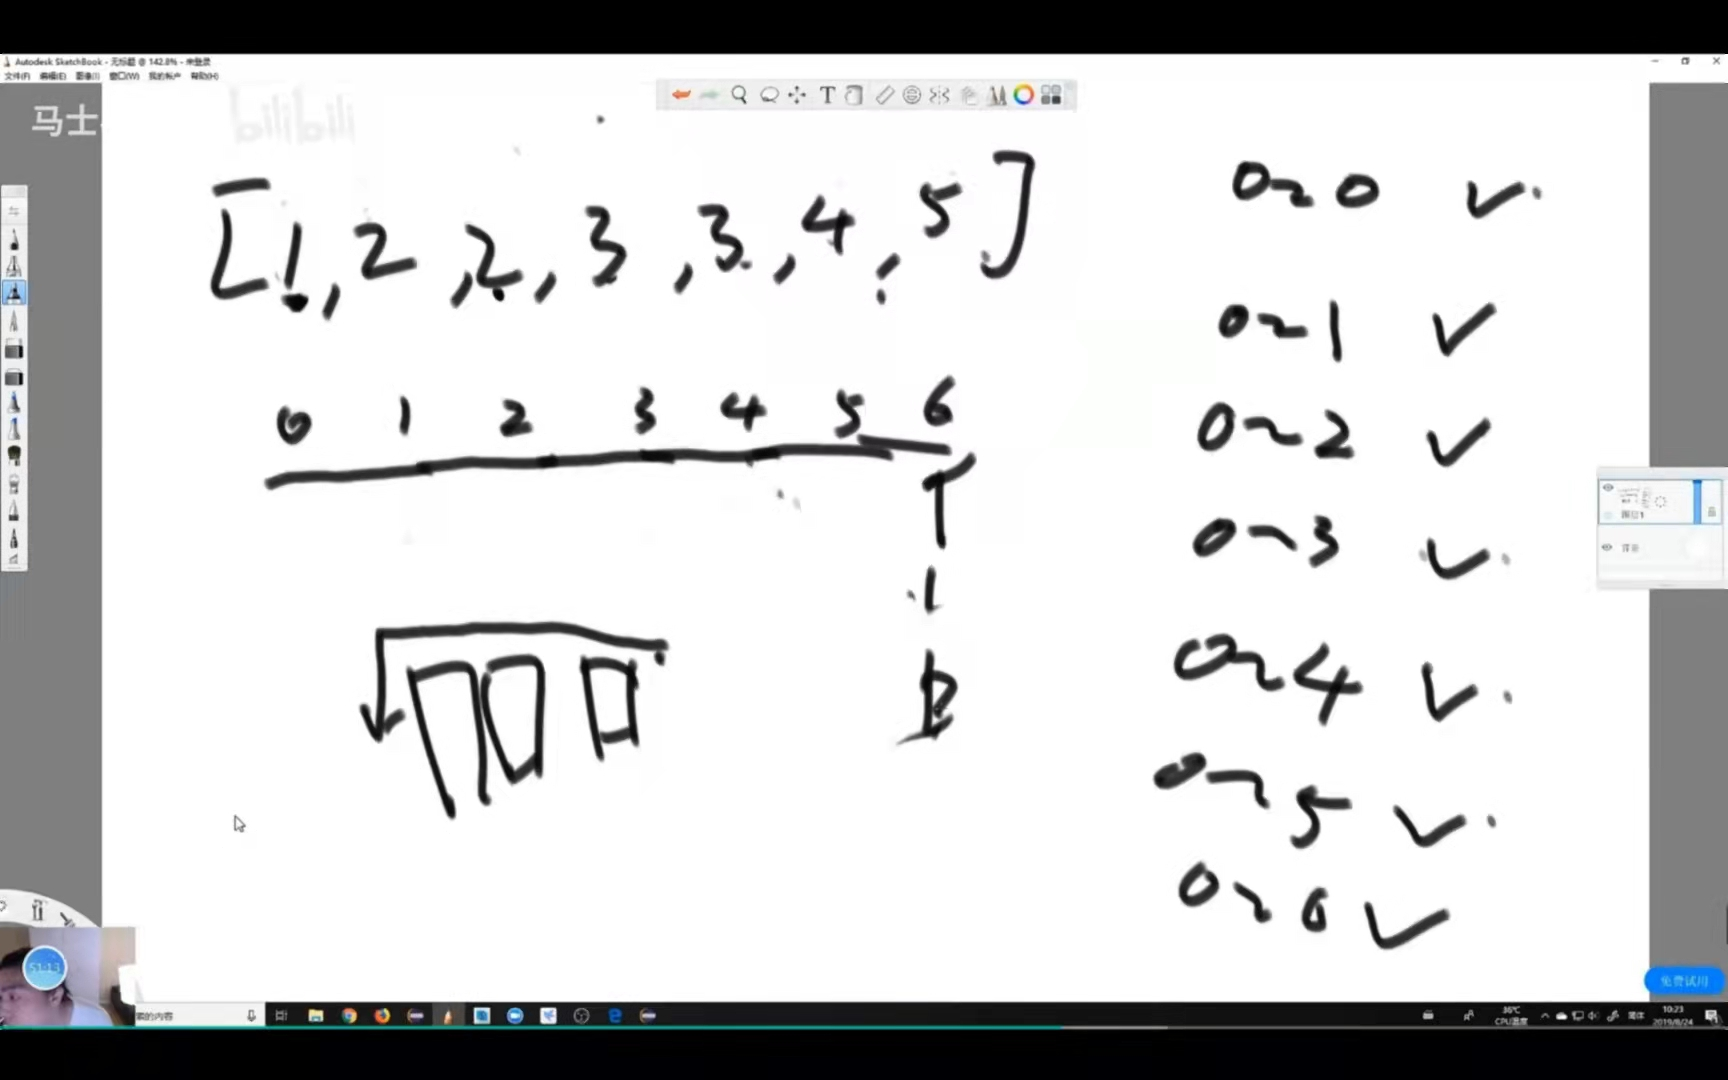 Autodesk SketchBook - 无标题 @ 142.8% - 未登录
文件(F) 编辑(E) 图像(I) 窗口(W) 我的帐户 帮助(H)
马士
bilibili
T
[1, 2, 2, 3, 3, 4, 5]
0 1 2 3 4 5 6
0~0 ✓
0~1 ✓
0~2 ✓
0~3 ✓
0~4 ✓
0~5 ✓
0~6 ✓
图层1
背景
51:13
免费试用
索的内容
36℃
CPU温度
简体
10:23
2019/8/24